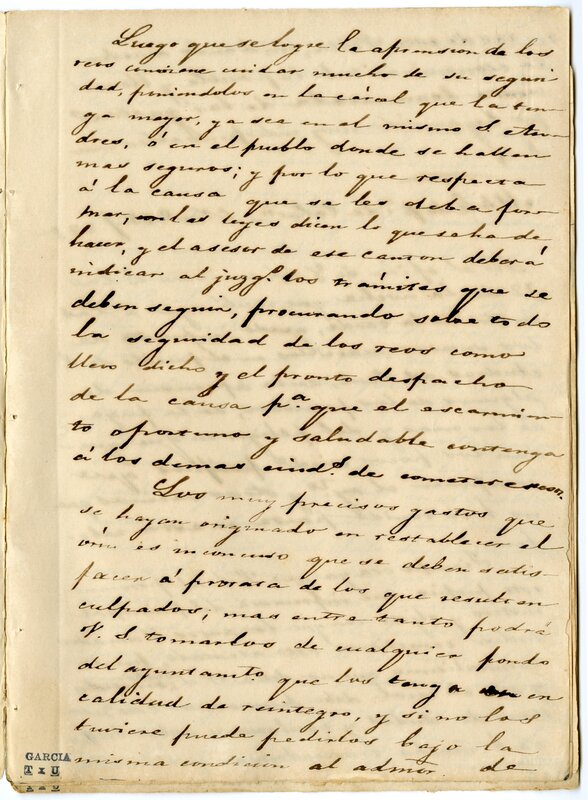 Luego que se logre la aprension de los
reos conviene cuidar mucho de su seguri
dad, poniéndolos en la cárcel que la ten
ga mayor, ya sea en el mismo S.
dres, ó en el pueblo donde se hallen
mas seguros; y por lo que respecta
á la causa que se les deba for
mar, las leyes dicen lo que se ha de
hacer, y el asesor de ese canton deberá
indicar al juzg.º los trámites que se
deben seguir, procurando sobre todo
la seguridad de los reos como
llevo dicho y el pronto despacho
de la causa p.ª que el escarmien
to oportuno y saludable contenga
á los demas ciud.s de cometer
Los muy precisos gastos que
se hayan originado en restablecer el
órn es inconcuso que se deben satis
facer á prorata de los que resulten
culpados; mas entre tanto podrá
V. S. tomarlos de cualquier fondo
del ayuntamto que los tenga en
calidad de reintegro, y si no los
tuviere puede pedirlos bajo la
misma condicion al admor. de
GARCIA
T x U